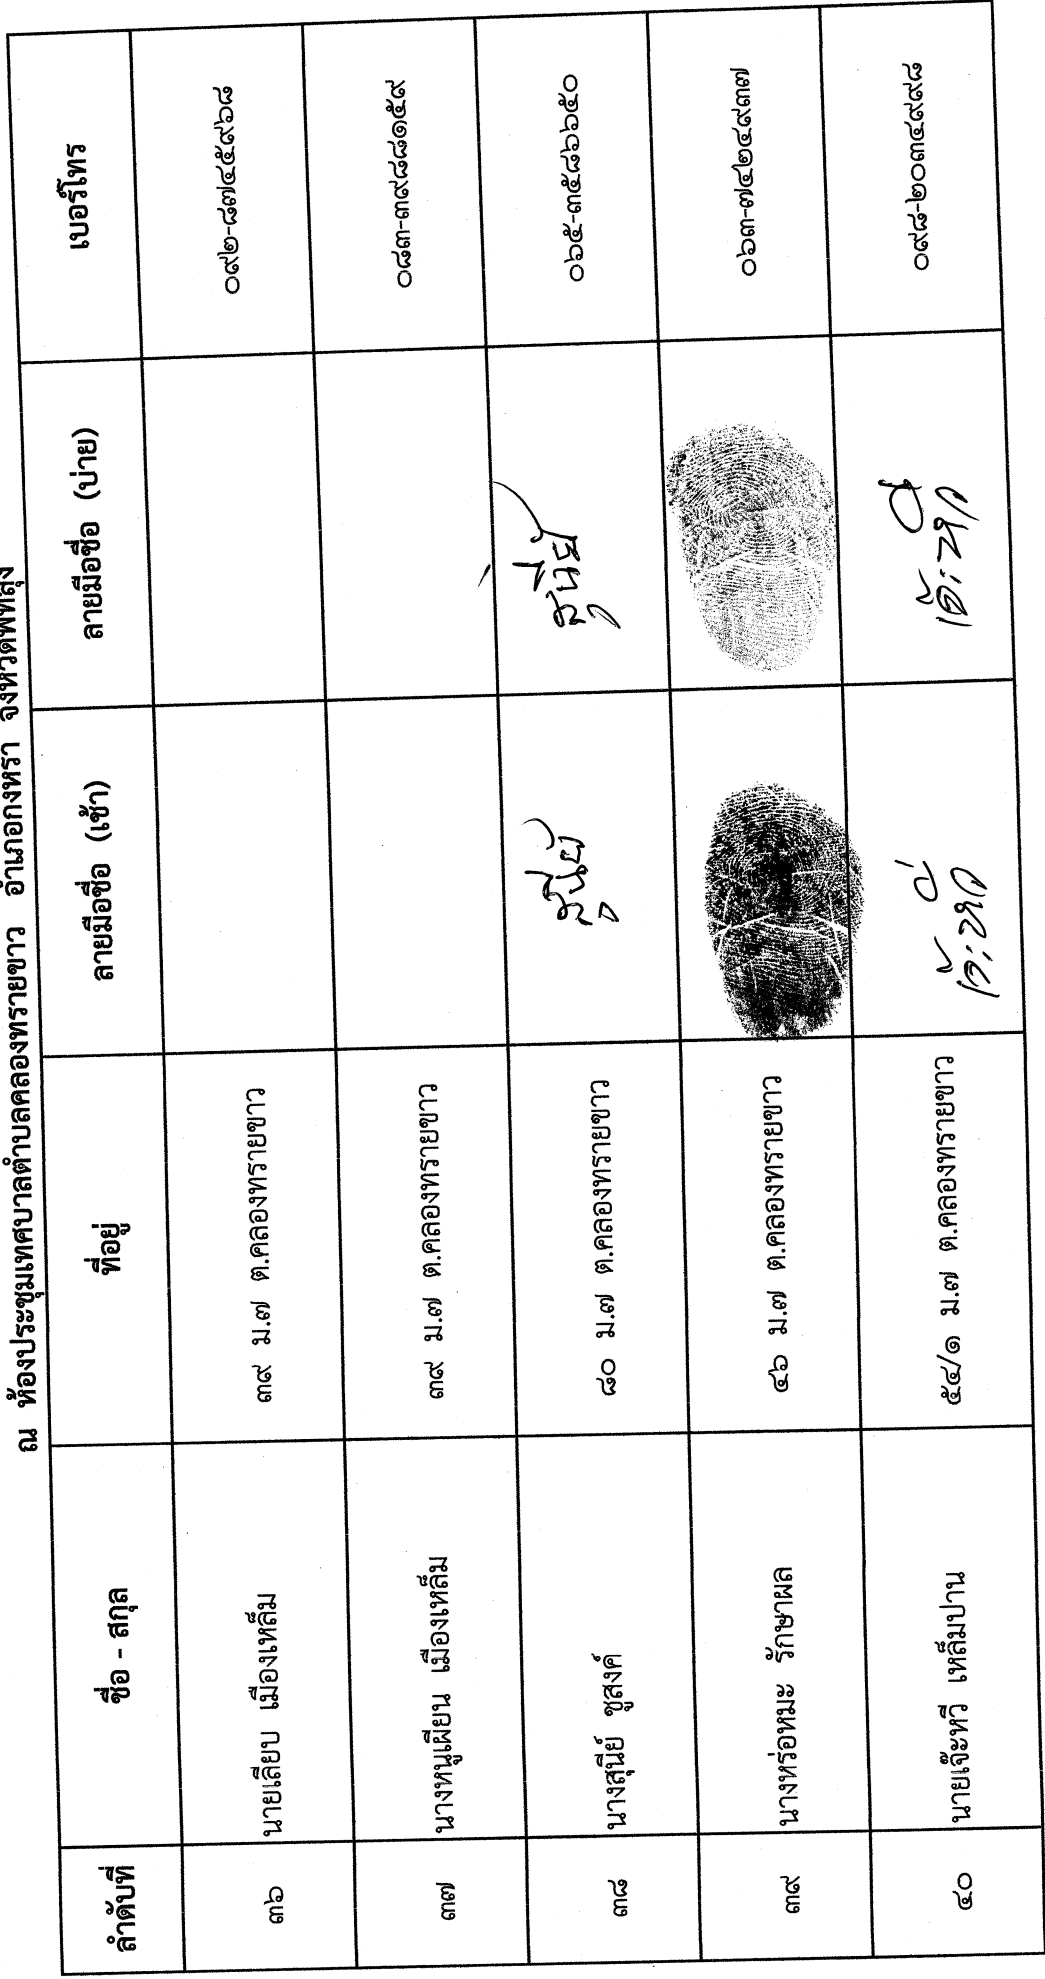 ณ ห้องประชุมเทศบาลตำบลคลองทรายขาว อำเภอกงหรา จังหวัดพัทลุง
ลำดับที่ ชื่อ - สกุล ที่อยู่ ลายมือชื่อ (เช้า) ลายมือชื่อ (บ่าย) เบอร์โทร
๓๖ นายเลียบ เมืองเหล็ม ๓๙ ม.๗ ต.คลองทรายขาว ๐๙๒-๘๗๔๕๙๖๘
๓๗ นางหนูเผียน เมืองเหล็ม ๓๙ ม.๗ ต.คลองทรายขาว ๐๘๓-๓๙๘๘๑๕๙
๓๘ นางสุนีย์ ชูสงค์ ๘๐ ม.๗ ต.คลองทรายขาว สุนีย์ สุนีย์ ๐๖๕-๓๕๘๖๖๕๐
๓๙ นางหร่อหมะ รักษาผล ๔๖ ม.๗ ต.คลองทรายขาว ๐๖๓-๗๔๒๔๙๓๗
๔๐ นายเจ๊ะหวี เหล็มปาน ๕๔/๑ ม.๗ ต.คลองทรายขาว ๐๙๘-๒๐๓๔๙๙๘